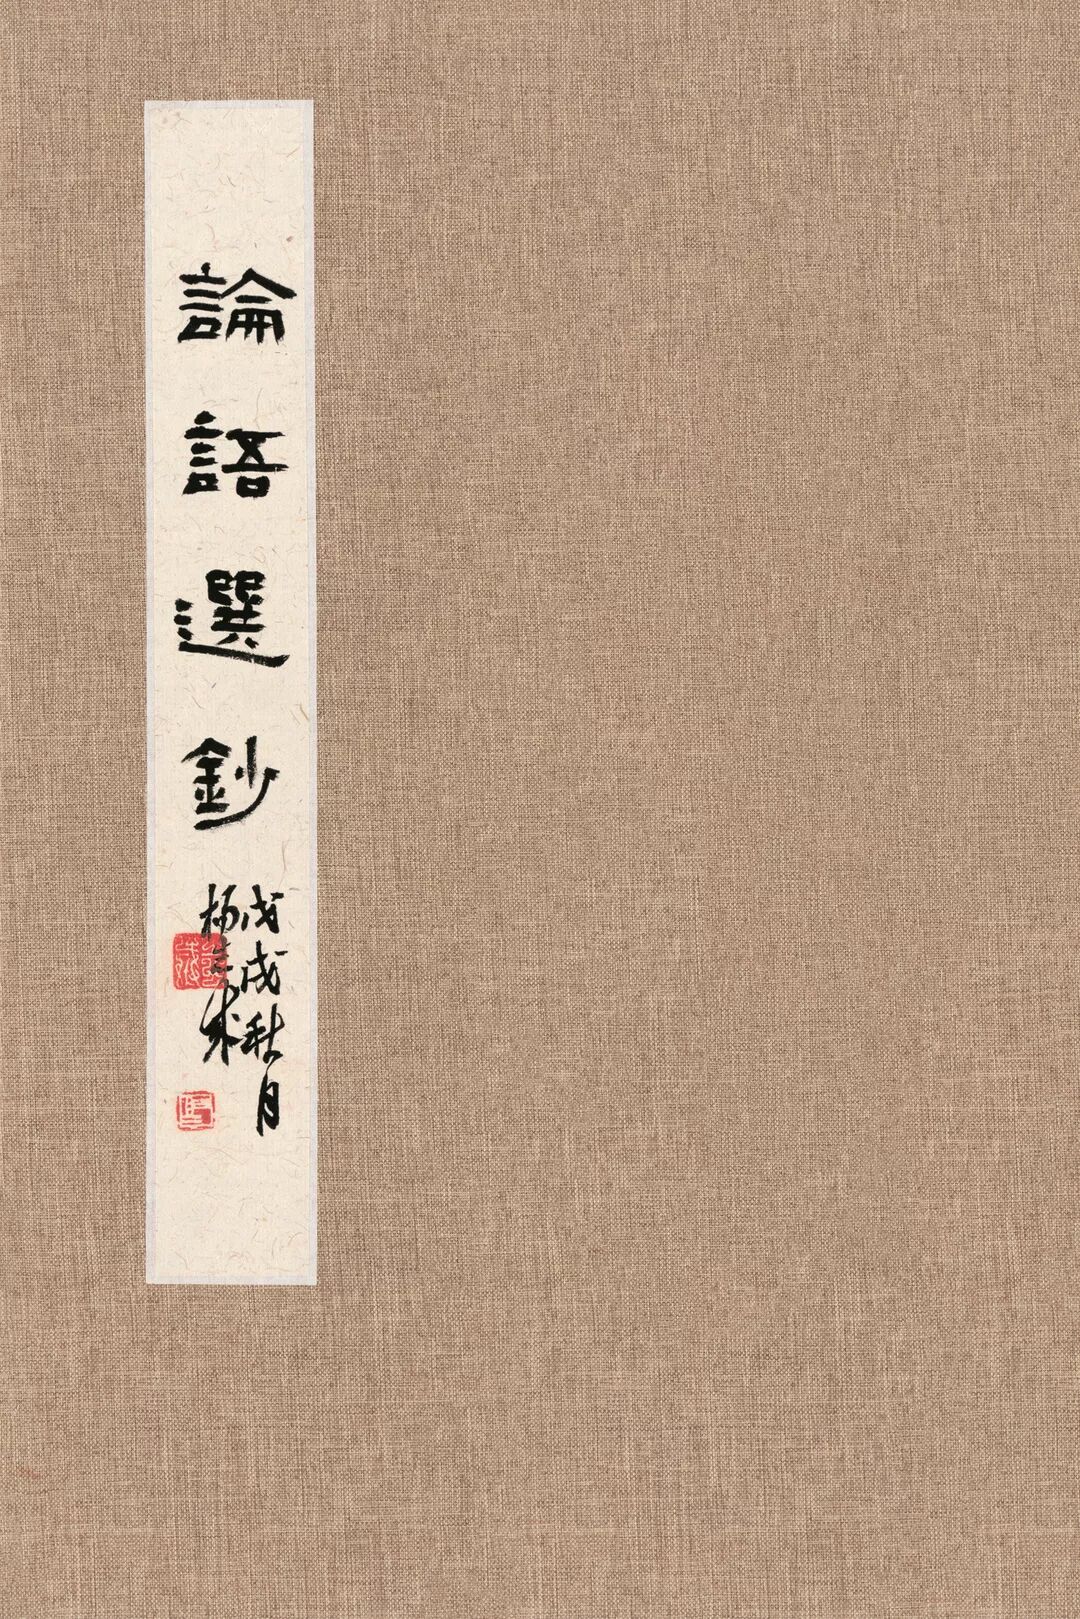 論語選鈔
戊戌秋月
楊